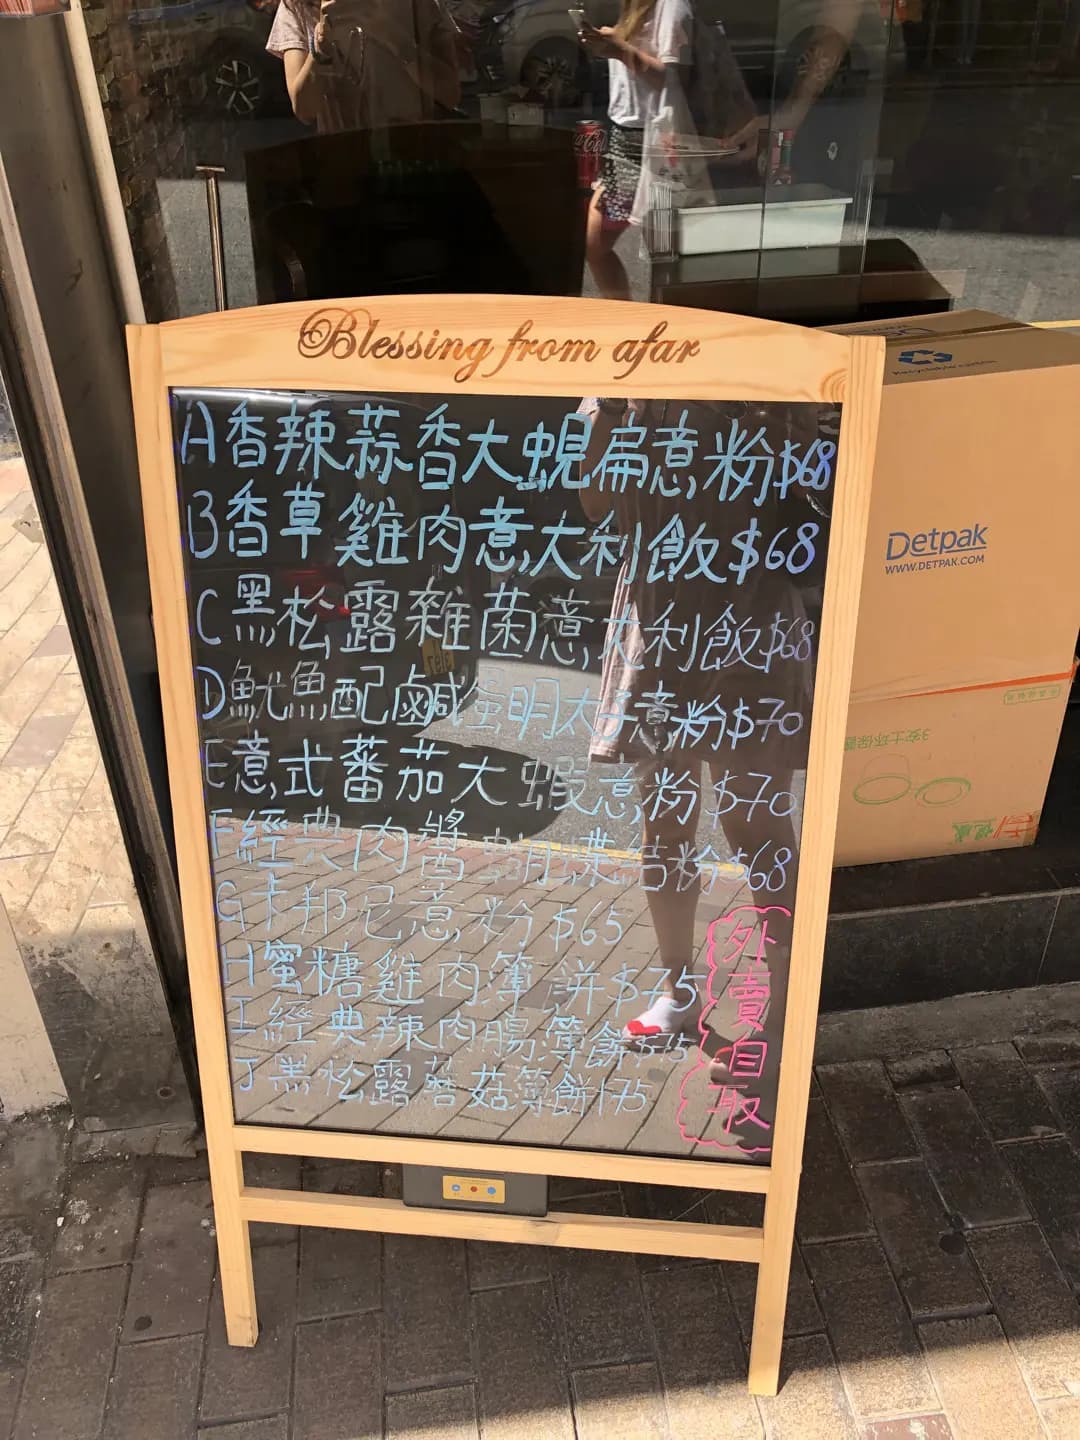 Blessing from afar
A香辣蒜香大蜆扁意粉$68
B香草雞肉意大利飯$68
C黑松露雜菌意大利飯$68
D魷魚配鹹蛋明太子意粉$70
E意式蕃茄大蝦意粉$70
F經典肉醬蝴蝶結粉$68
G卡邦尼意粉$65
H蜜糖雞肉簿餅$75
I經典辣肉腸簿餅$75
J黑松露蘑菇簿餅$75
外賣自取
Recyclable
Detpak
WWW.DETPAK.COM